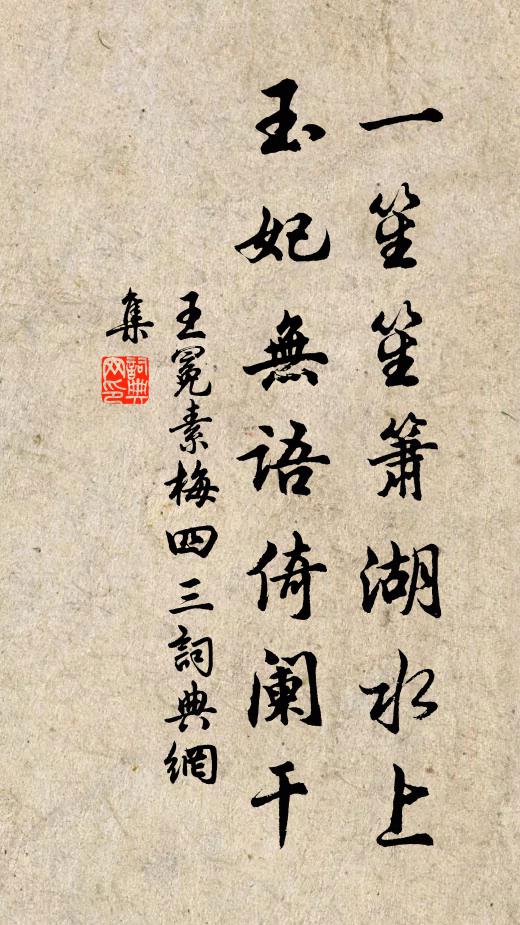 一笙笙簫湖水上
玉妃無語倚闌干
王冕素梅四三詞典網
集
詞典網印